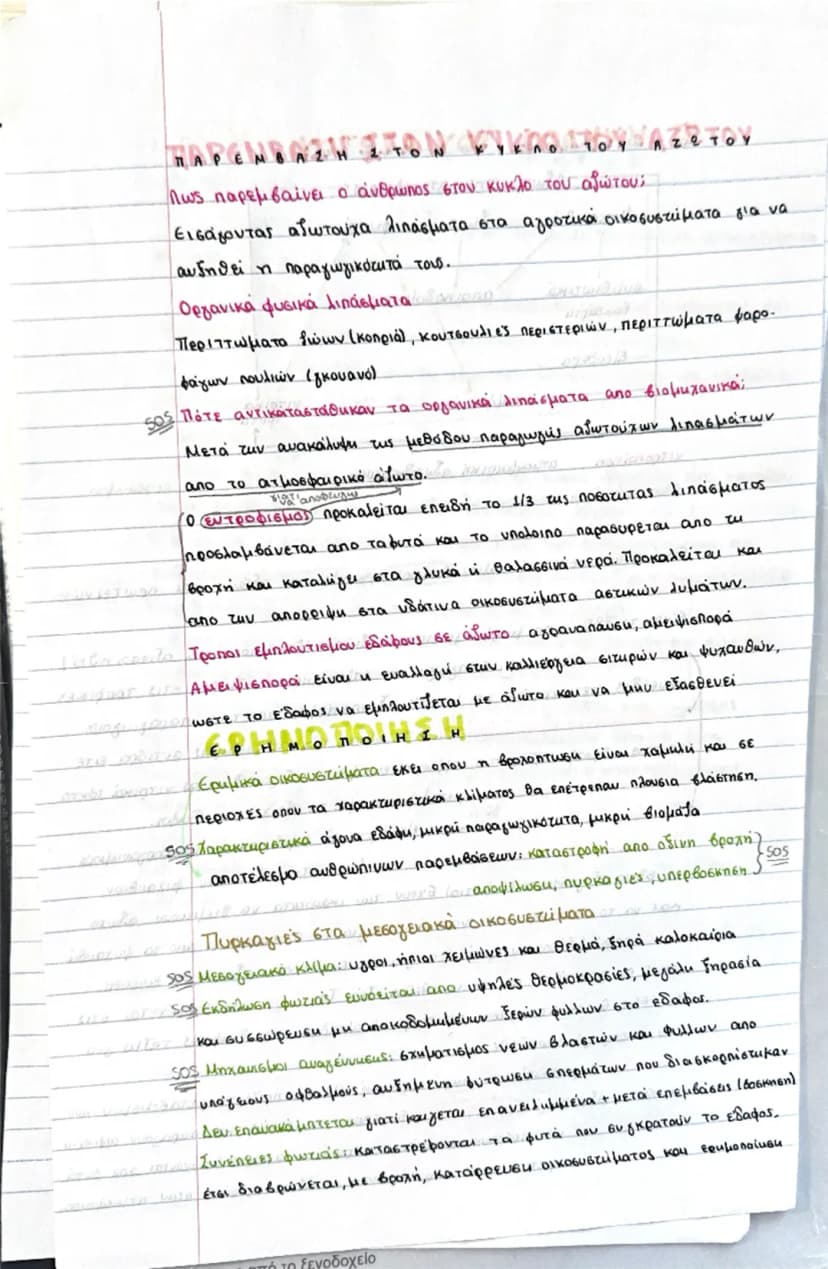 ΠΑΡΕΜΒΑΣΗ ΣΤΟΝ ΚΥΚΛΟ ΤΟΥ ΑΖΩΤΟΥ
Πως παρεμβαίνει ο άνθρωπος στον κυκλο του αζώτου;
Εισάγοντας αζωτούχα λιπάσματα στα αγροτικά οικοσυστήματα για να
αυξηθεί η παραγωγικότητά τους.
Οργανικά φυσικά λιπάσματα
Περιττώματα ζώων (κοπριά), κουτσουλιές περιστεριών, περιττώματα ψαρο-
φάγων πουλιών (γκουανό)
SOS Πότε αντικαταστάθηκαν τα οργανικά λιπάσματα απο βιομηχανικά;
Μετά την ανακάλυψη της μεθόδου παραγωγής αζωτούχων λιπασμάτων
απο το ατμοσφαιρικό άζωτο.
Ο ευτροφισμος προκαλείται επειδή το 1/3 της ποσότητας λιπάσματος
προσλαμβάνεται απο τα φυτά και το υπολοιπο παρασύρεται απο τη
βροχή και καταλήγει στα γλυκά ή θαλασσινά νερά. Προκαλείται και
απο την απορριψη στα υδάτινα οικοσυστήματα αστικών λυμάτων.
Τροποι εμπλουτισμου εδάφους σε άζωτο αγρανάπαυση, αμειψισπορά
Αμειψισπορά είναι η εναλλαγή στην καλλιέργεια σιτηρών και ψυχανθών,
ωστε το έδαφος να εμπλουτίζεται με άζωτο και να μην εξασθενεί
ΕΡΗΜΟΠΟΙΗΣΗ
Ερημικά οικοσυστήματα εκει οπου η βροχοπτωση είναι χαμηλή και σε
περιοχες οπου τα χαρακτηριστικά κλίματος θα επέτρεπαν πλουσια βλάστηση.
SOS Χαρακτηριστικά άγονα εδάφη, μικρή παραγωγικότητα, μικρή βιομάζα
αποτέλεσμα ανθρώπινων παρεμβάσεων: καταστροφή απο οξινη βροχή SOS
αποψίλωση, πυρκαγιές, υπερβοσκηση
Πυρκαγιές στα μεσογειακά οικοσυστήματα
SOS Μεσογειακό κλίμα: υγροι, ήπιοι χειμώνες και θερμά, ξηρά καλοκαίρια
SOS Εκδήλωση φωτιάς ευνοείται απο υψηλές θερμοκρασίες, μεγάλη ξηρασία
και συσσώρευση μη αποικοδομημένων ξερών φυλλων στο εδαφος.
SOS Μηχανισμοι αναγέννησης: σχηματισμος νεων βλαστών και φυλλων απο
υπόγειους οφθαλμούς, αυξημενη φυτρωση σπερμάτων που διασκορπίστηκαν
Δεν επανακάμπτεται γιατί καιγεται επανειλημμένα + μετά επεμβάσεις (βοσκηση)
Συνέπειες φωτιάς: καταστρέφονται τα φυτά που συγκρατούν το έδαφος.
έτσι διαβρώνεται, με βροχή, κατάρρευση οικοσυστήματος και ερημοποίηση
από το ξενοδοχείο